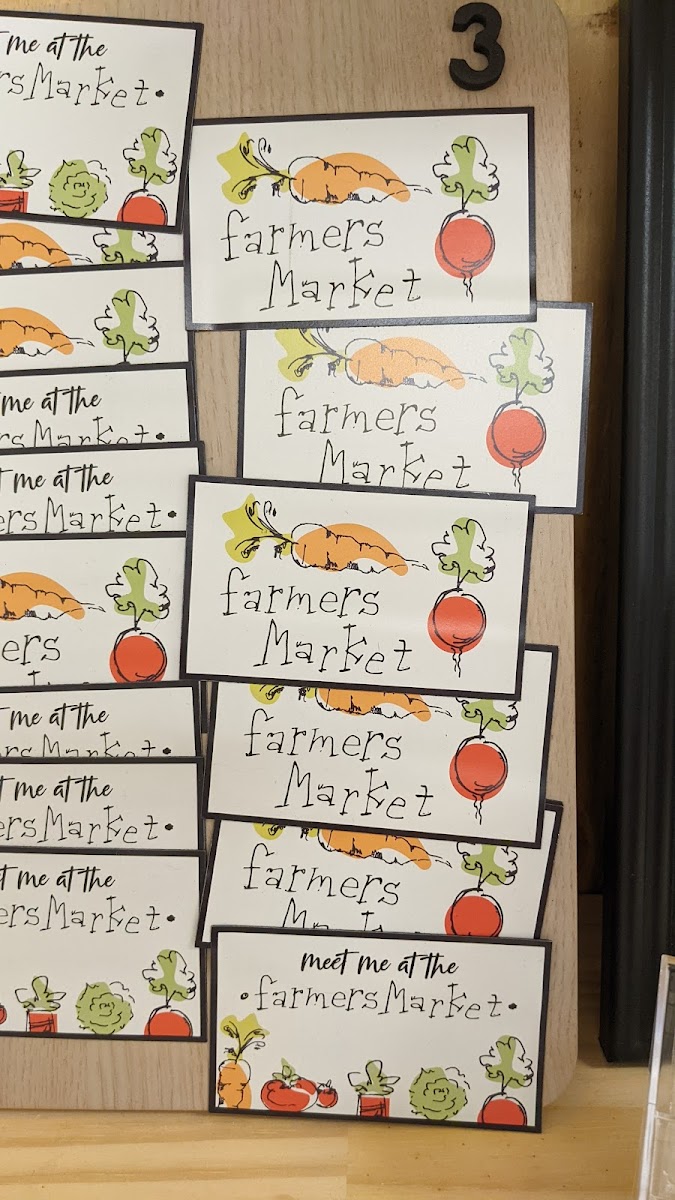 3
me at the
rsMarket•
farmers
Market
farmers
Market
me at the
rsMarket•
me at the
ersMarket•
farmers
Market
ers
farmers
Market
me at the
rsMarket•
me at the
ersMarket•
farmers
Mark
me at the
ersMarket•
meet me at the
•farmersMarket•